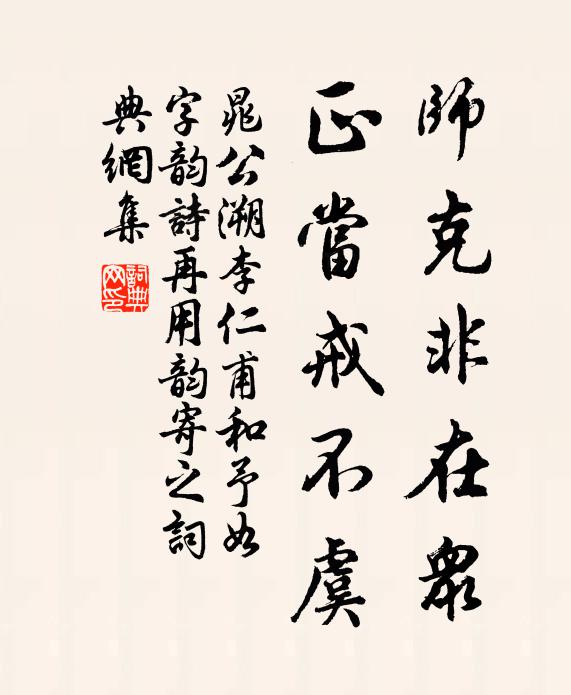 師克非在衆
正當戒不虞
晁公溯李仁甫和予如
字韵詩再用韵寄之詞
典網集
詞典网印